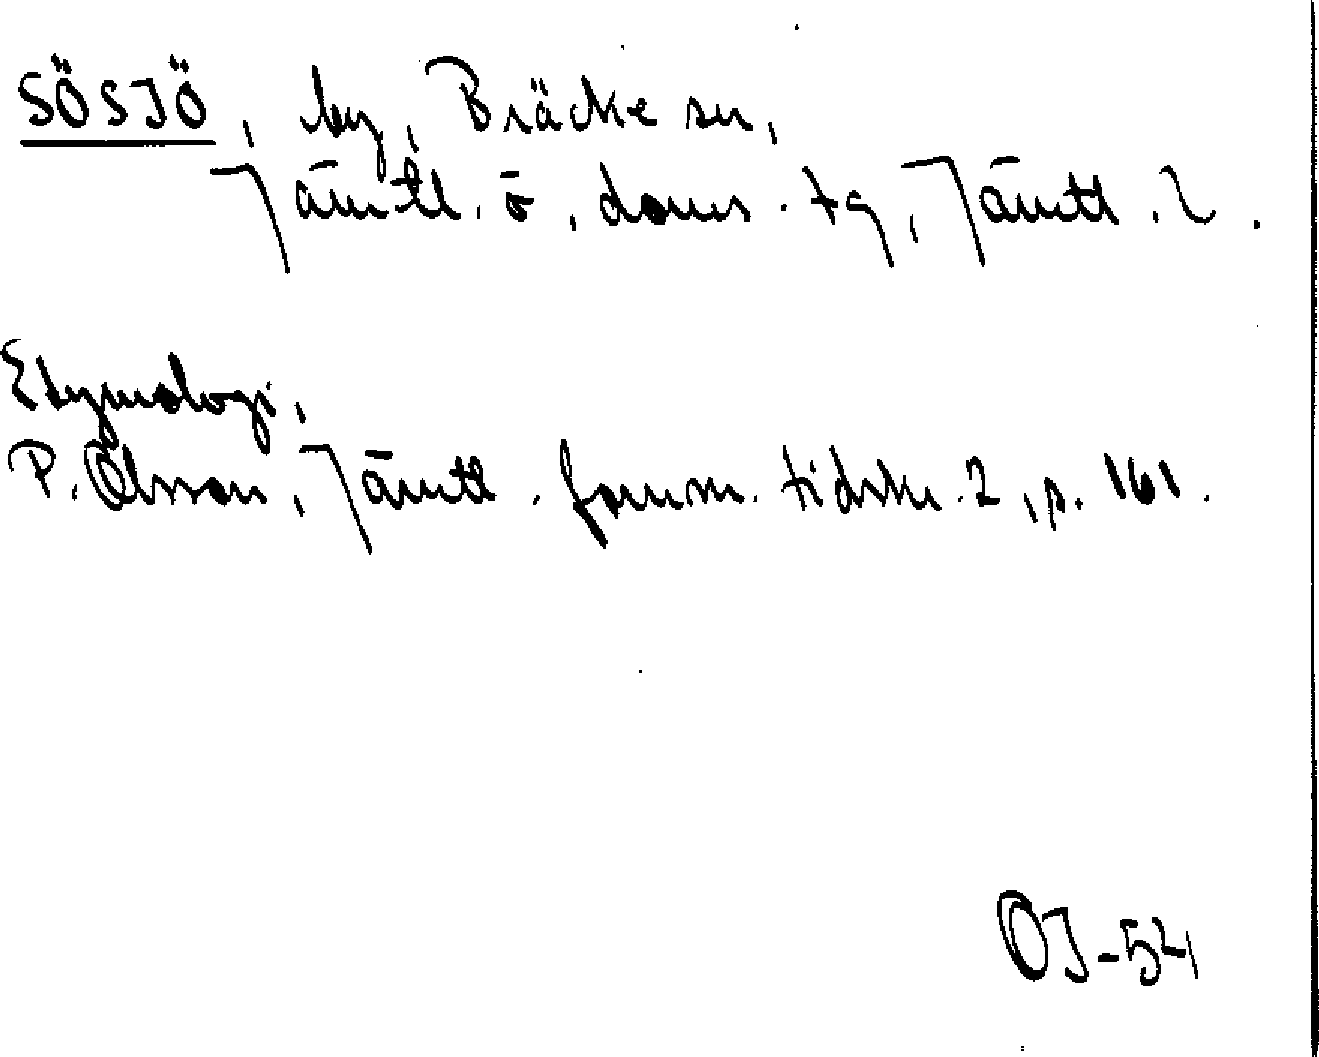 SÖSJÖ, by, Bräcke sn,
Jämtl. ö. doms. tg, Jämtl. l.
Etymologi,
P. Olsson, Jämtl. fornm. tidskr. 2, p. 161.
OJ-54